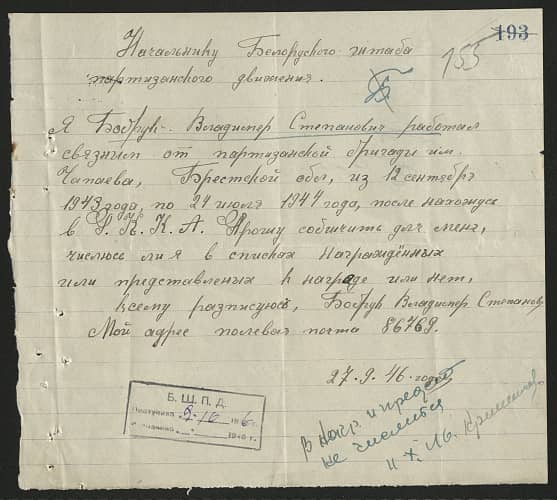 193
155
Начальнику Белоруского штаба
партизанского движения.
Я Бобрук Владимер Степанович работал
связным от партизанской бригады им.
Чапаева, Брестской обл, из 12 сентября
1943 года, по 24 июля 1944 года, после нахожусь
в Р. К. К. А. Прошу собщить для меня,
числюсь ли я в списках награждённых
или представленых к награде или нет,
в чему
Бобрук Владимер Степанов
Мой адрес полевая почта 86769.
27. 9. 46. года
Б. Ш. П. Д.
Поступило 9-10 1946 г.
1946 г.
В нагр. и предст
не числится
11 X 46.